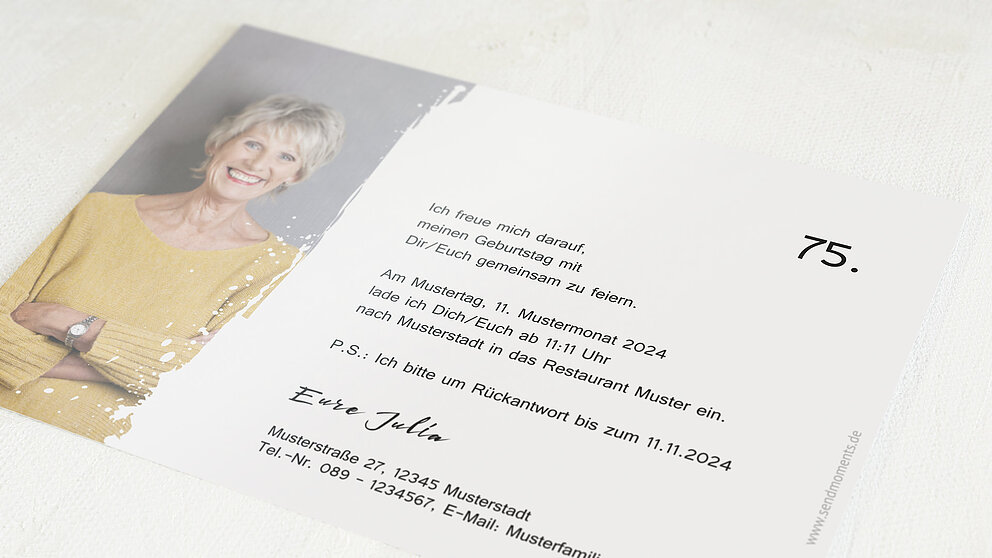 75.
Ich freue mich darauf,
meinen Geburtstag mit
Dir/Euch gemeinsam zu feiern.
Am Mustertag, 11. Mustermonat 2024
lade ich Dich/Euch ab 11:11 Uhr
nach Musterstadt in das Restaurant Muster ein.
P.S.: Ich bitte um Rückantwort bis zum 11.11.2024
Eure Julia
Musterstraße 27, 12345 Musterstadt
Tel.-Nr. 089 - 1234567, E-Mail: Musterfamili
www.sendmoments.de